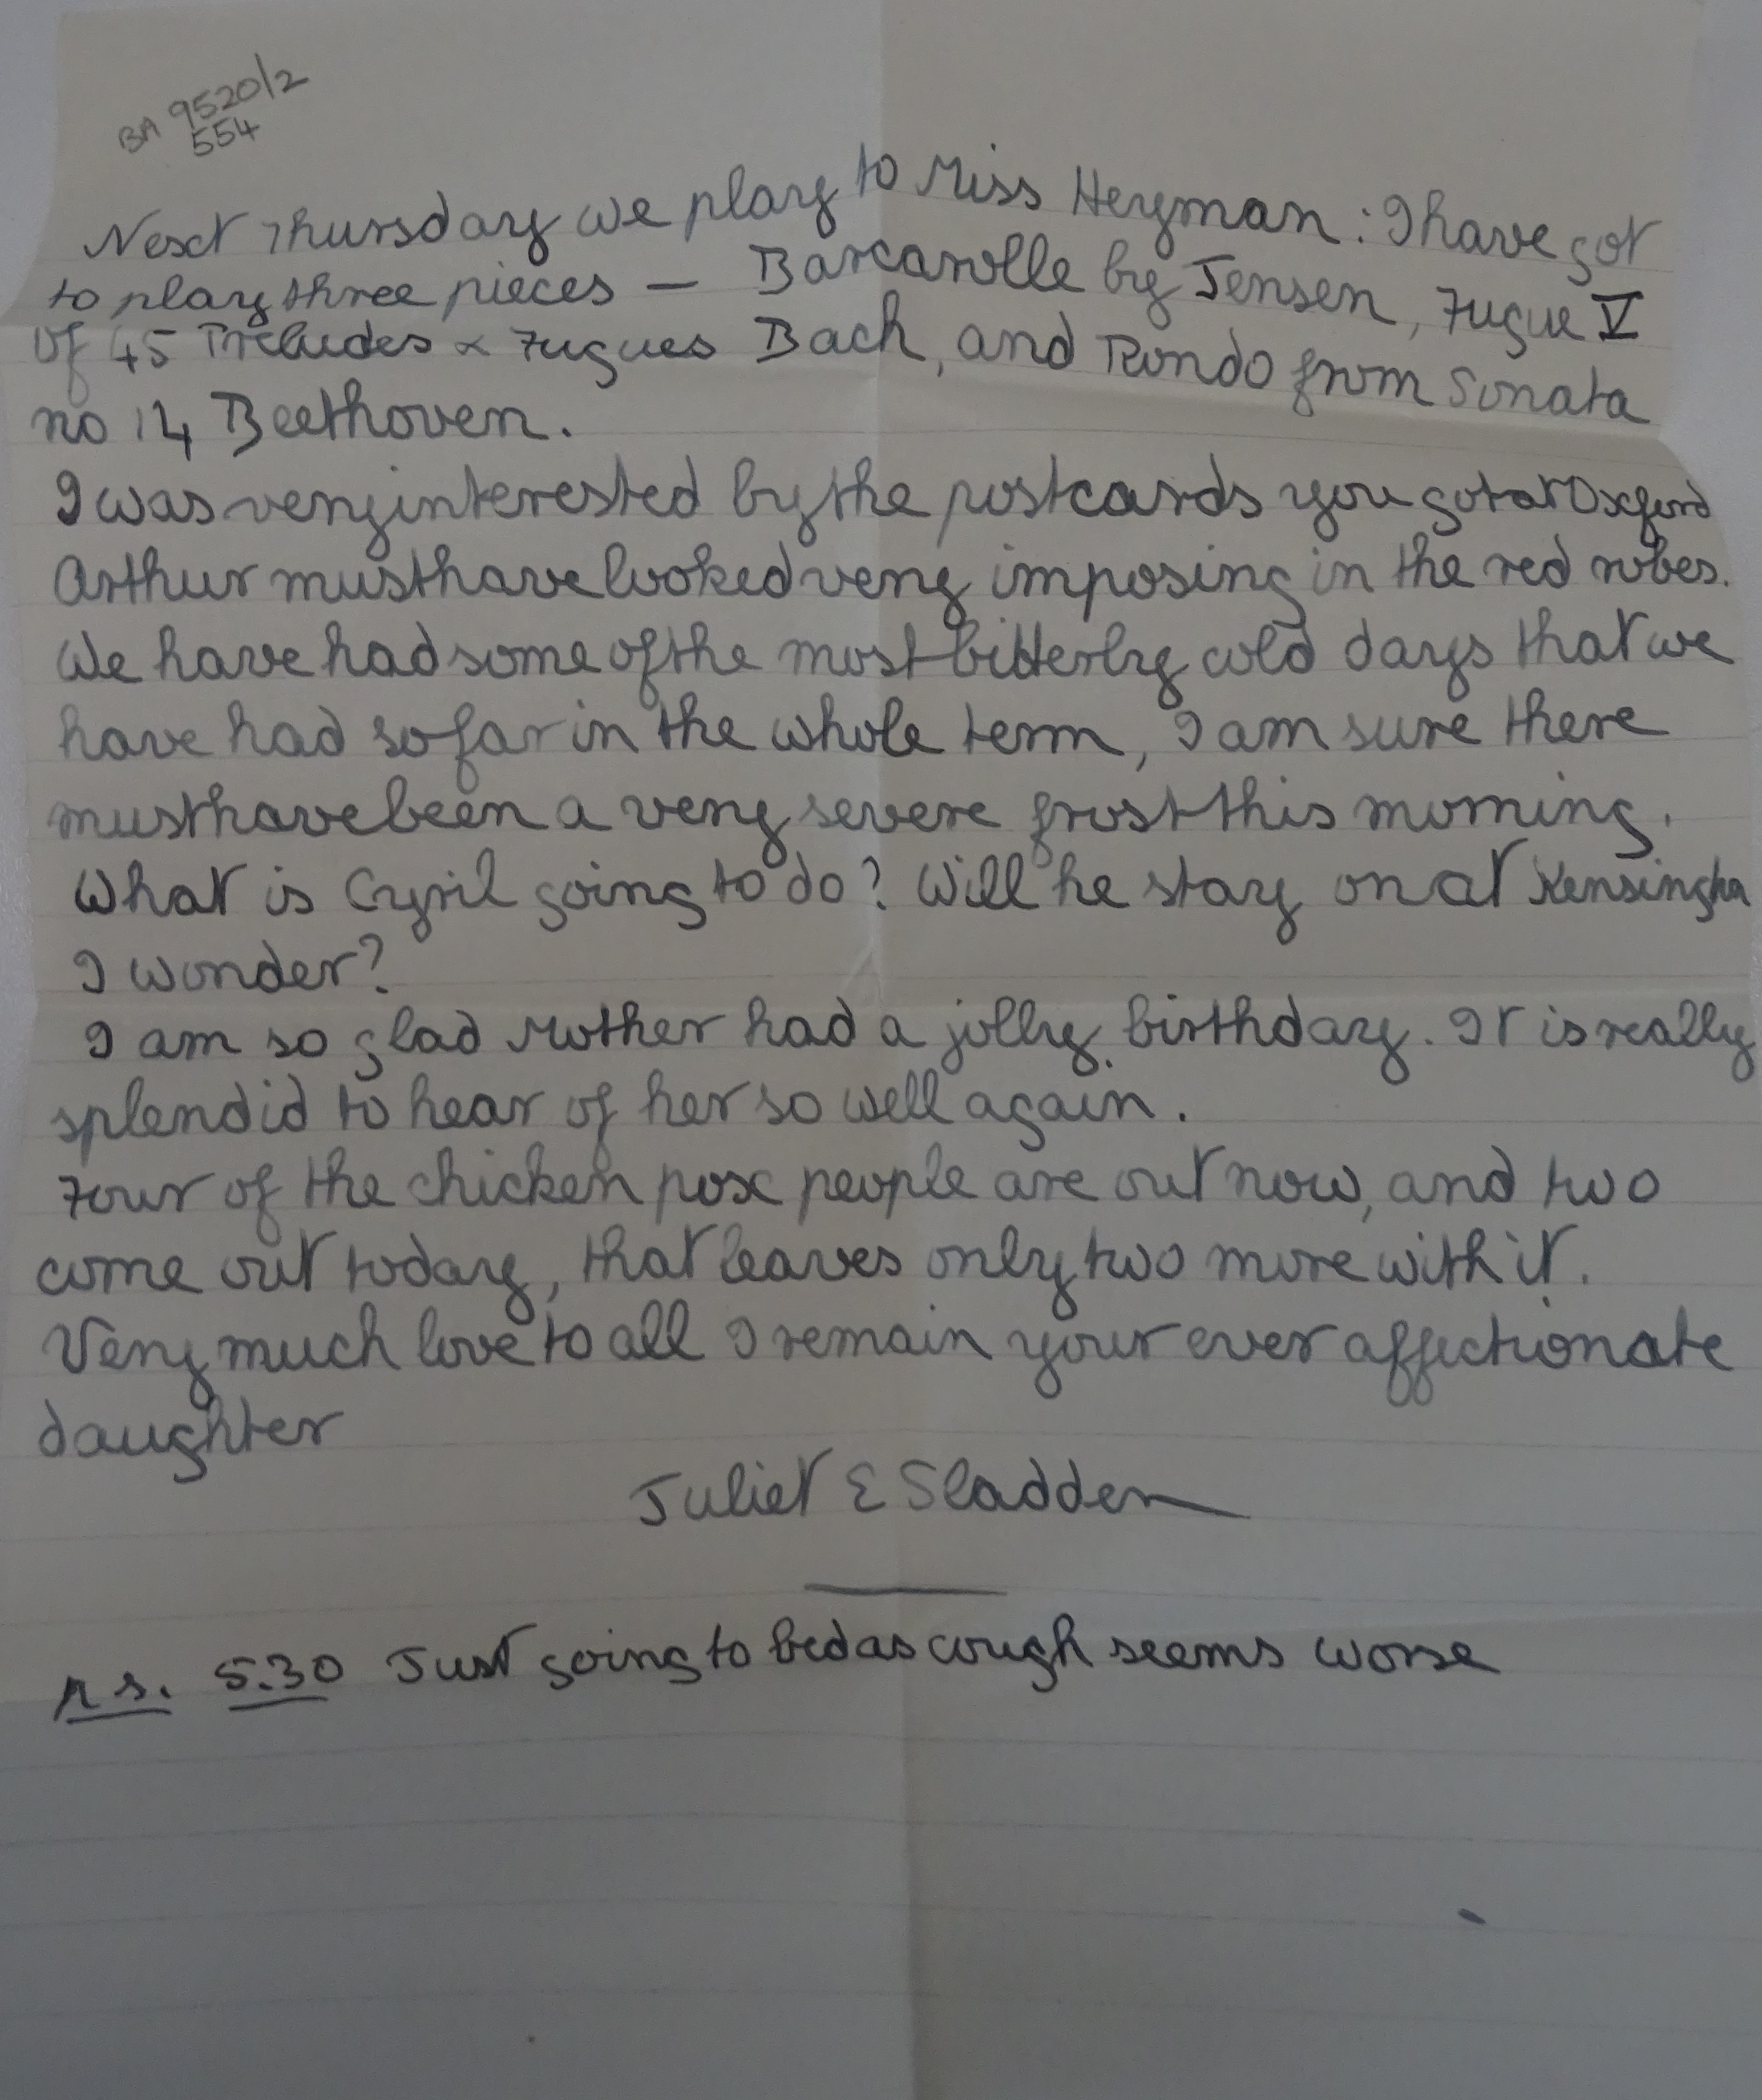 BA 9520/2
554
Next Thursday we play to Miss Heyman : I have got
to play three pieces — Barcarolle by Jensen, Fugue V
of 45 Preludes & Fugues Bach, and Rondo from Sonata
no 14 Beethoven.
I was very interested by the postcards you got at Oxford
Arthur must have looked very imposing in the red robes.
We have had some of the most bitterly cold days that we
have had so far in the whole term, I am sure there
must have been a very severe frost this morning.
What is Cyril going to do? Will he stay on at Kensington
I wonder?
I am so glad Mother had a jolly birthday. It is really
splendid to hear of her so well again.
Four of the chicken pox people are out now, and two
come out today, that leaves only two more with it.
Very much love to all I remain your ever affectionate
daughter
Juliet E Sladden
P.S. 5.30 Just going to bed as cough seems worse